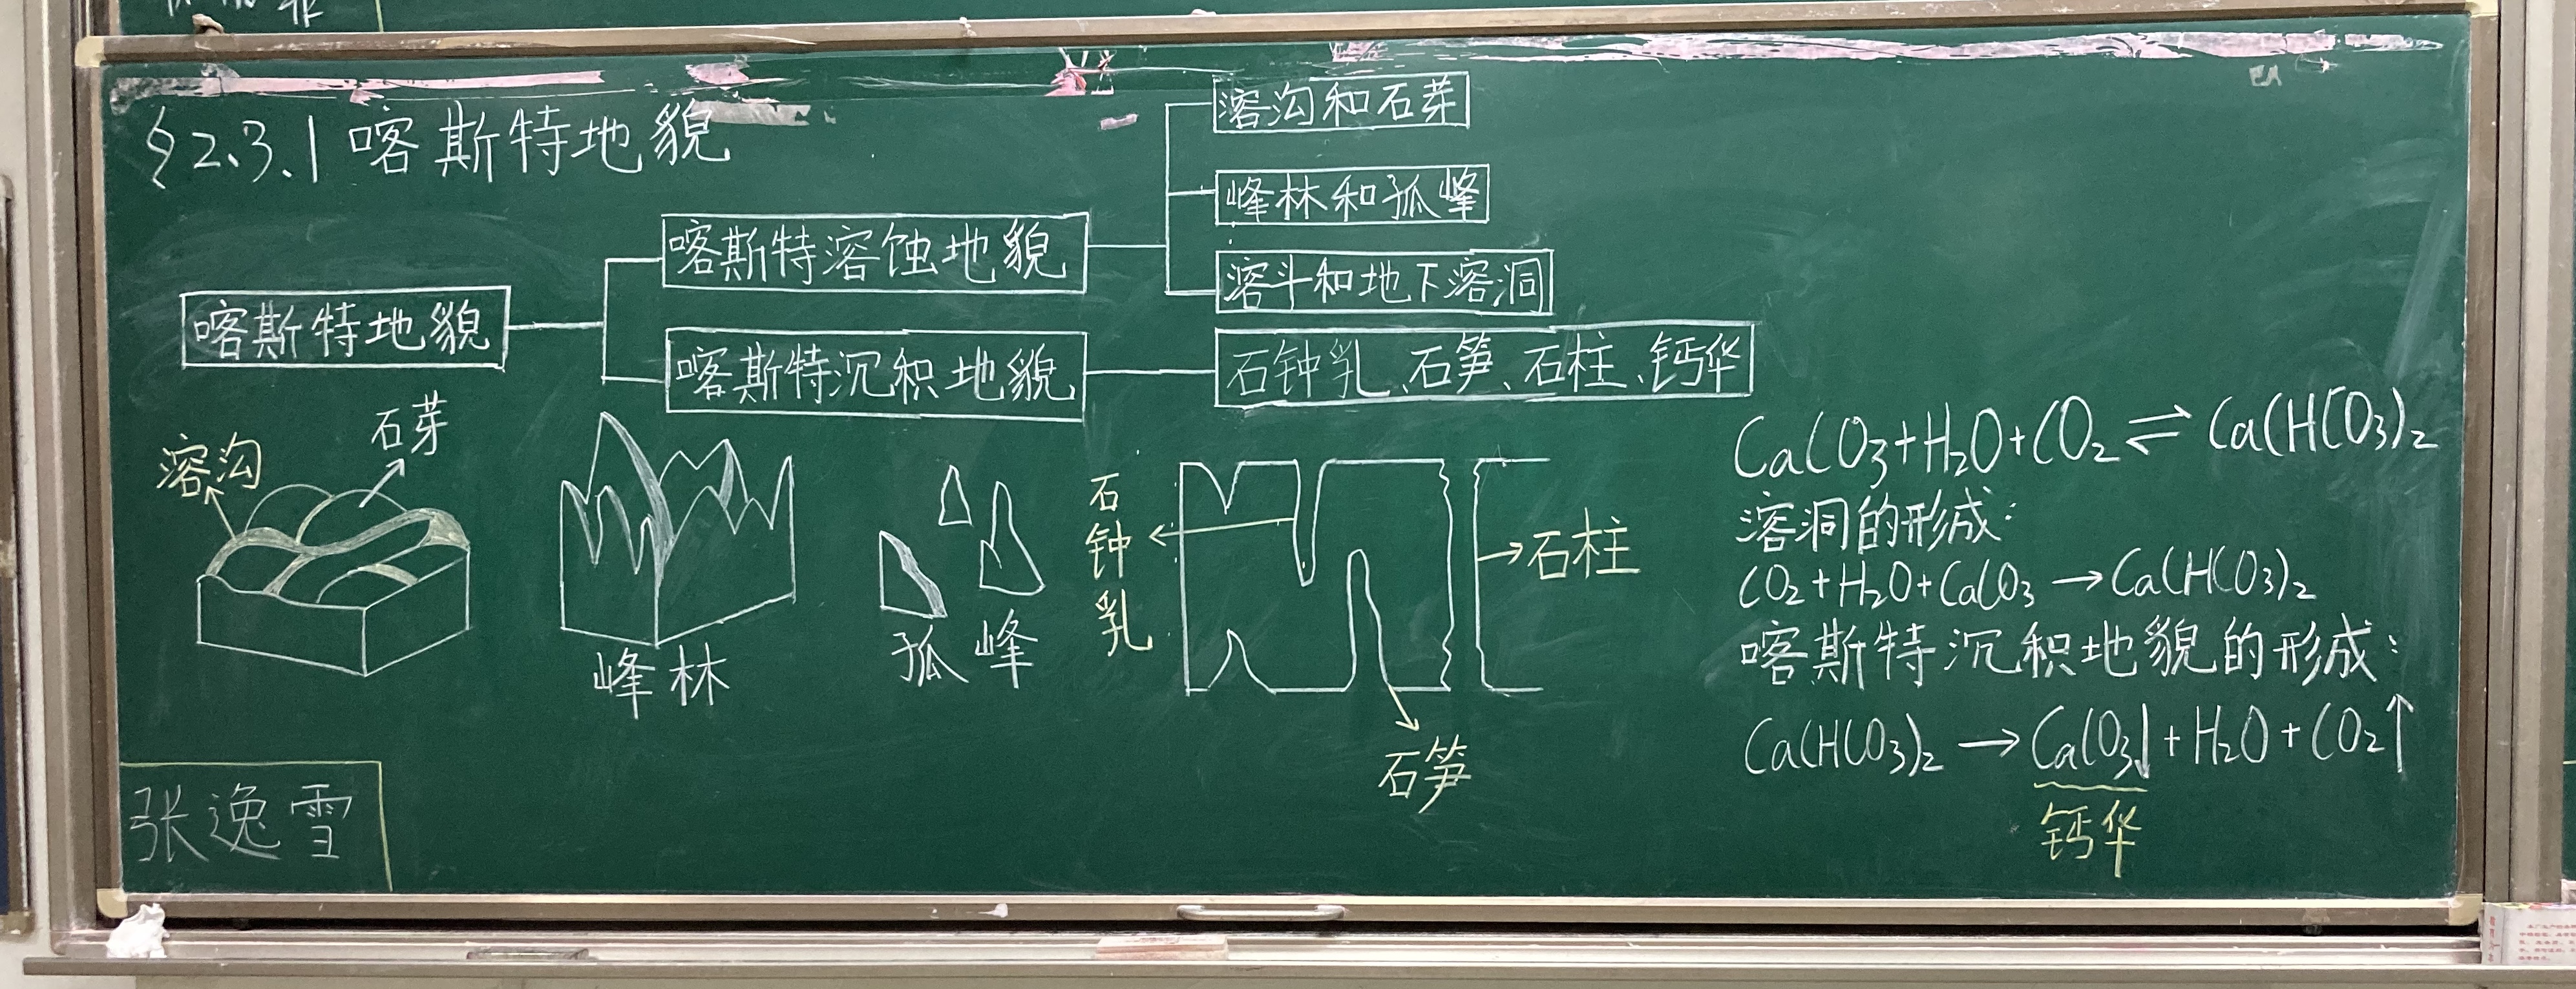 §2.3.1 喀斯特地貌
喀斯特地貌
喀斯特溶蚀地貌
溶沟和石芽
峰林和孤峰
溶斗和地下溶洞
喀斯特沉积地貌
石钟乳、石笋、石柱、钙华
溶沟
石芽
峰林
孤峰
石钟乳
石柱
石笋
CaCO₃+H₂O+CO₂⇌Ca(HCO₃)₂
溶洞的形成:
CO₂+H₂O+CaCO₃→Ca(HCO₃)₂
喀斯特沉积地貌的形成:
Ca(HCO₃)₂→CaCO₃↓+H₂O+CO₂↑
钙华
张逸雪